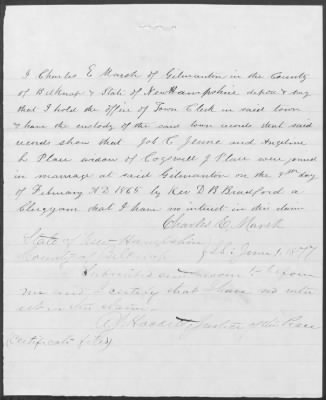 I Charles E Marsh of Gilmanton in the County
of Belknap & State of New Hampshire depose & say
that I hold the office of Town Clerk in said town
& have the custody of the said town records that said
records show that Job C. Jenne and Angeline
L. Place widow of Cogswell J Place were joined
in marriage at said Gilmanton on the 9th day
of February A.D. 1865 by Rev D B Bradford a
Clergyman that I have no interest in this claim
Charles E. Marsh
State of New Hampshire
County of Belknap June 1. 1877
Subscribed and sworn to before
me and I certify that I have no inter
est in this claim.
Justice of the Peace
(Certificate filed)